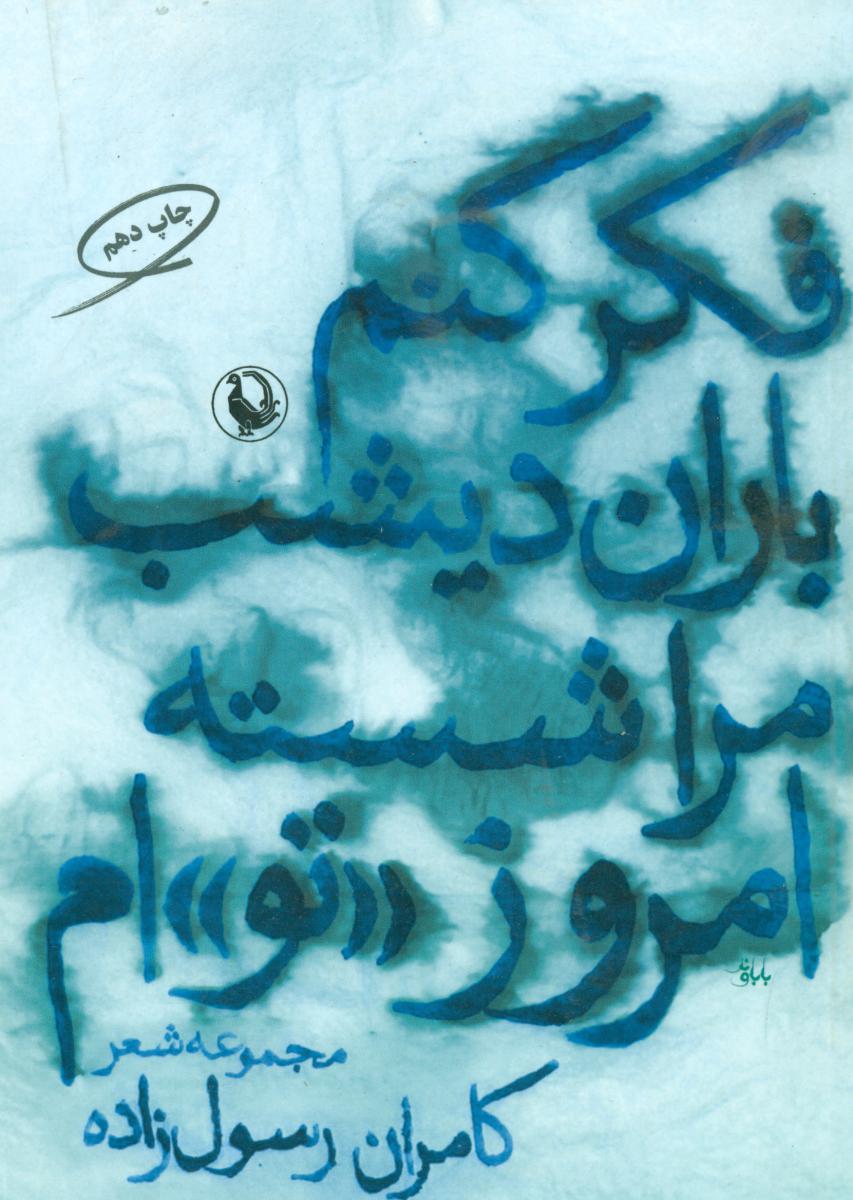 چاپ دهم
فکر کنم
باران دیشب
مرا شسته
امروز «تو» ام
باباوند
مجموعه شعر
کامران رسول‌زاده